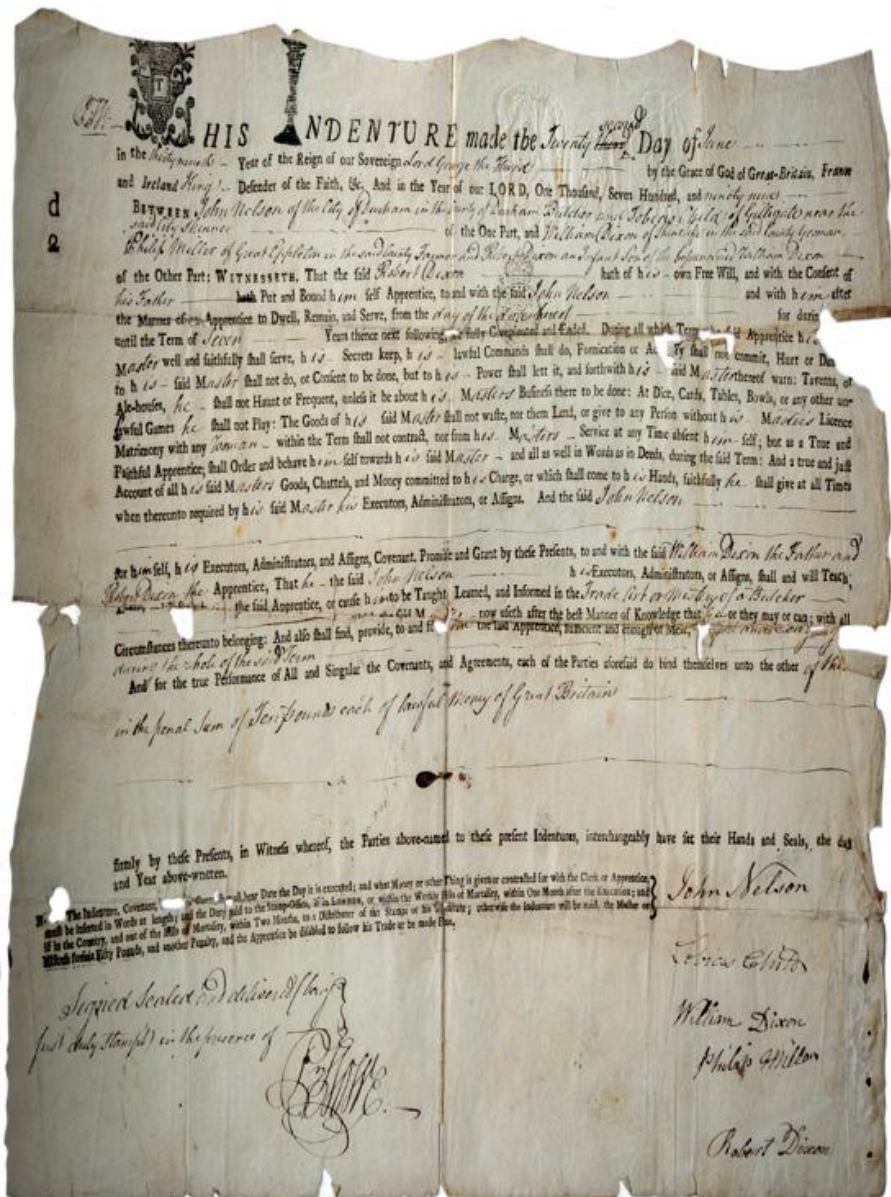 THIS INDENTURE made the Twenty second Day of June
in the thirty ninth Year of the Reign of our Sovereign Lord George the Third by the Grace of God of Great-Britain, France
and Ireland King Defender of the Faith, &c. And in the Year of our LORD, One Thousand, Seven Hundred, and ninety nine
BETWEEN John Nelson of the City of Durham in the County of Durham Butcher and Tobias Child of Gilligate near the
said City Skinner of the One Part, and William Dixon of in the said County Yeoman
Philip Miller of Great Eppleton in the said County Farmer and Robert Dixon an Infant Son of the William Dixon
of the Other Part: WITNESSETH, That the said Robert Dixon hath of his own Free Will, and with the Consent of
his Father hath Put and Bound him self Apprentice, to and with the said John Nelson and with him after
the Manner of an Apprentice to Dwell, Remain, and Serve, from the day of the date hereof for during
until the Term of Seven Years thence next following, be fully Compleated and Ended. During all which Term the said Apprentice his
Master well and faithfully shall serve, his Secrets keep, his lawful Commands shall do, Fornication or shall not commit, Hurt or
to his said Master shall not do, or Consent to be done, but to his Power shall lett it, and forthwith his said Master thereof warn: Taverns, or
Ale-houses, he shall not Haunt or Frequent, unless it be about his Masters Business there to be done: At Dice, Cards, Tables, Bowls, or any other un-
lawful Games he shall not Play: The Goods of his said Master shall not waste, nor them Lend, or give to any Person without his Masters Licence
Matrimony with any Woman within the Term shall not contract, nor from his Masters Service at any Time absent him self; but as a True and
Faithful Apprentice, shall Order and behave him self towards his said Master and all as well in Words as in Deeds, during the said Term: And a true and just
Account of all his said Masters Goods, Chattels, and Money committed to his Charge, or which shall come to his Hands, faithfully he shall give at all Times
when thereunto required by his said Master his Executors, Administrators, or Assigns. And the said John Nelson
for him self, his Executors, Administrators, and Assigns, Covenant, Promise and Grant by these Presents, to and with the said William Dixon the Father and
Robert Dixon the Apprentice, That he the said John Nelson his Executors, Administrators, or Assigns, shall and will Teach,
the said Apprentice, or cause him to be Taught, Learned, and Informed in the Trade Art or Mistery of a Butcher
now useth after the best Manner of Knowledge that he or they may or can; with all
Circumstances thereunto belonging: And also shall find, provide, to and for the said Apprentice, sufficient and enough of Meat,
during the whole of the said Term
And for the true Performance of All and Singular the Covenants, and Agreements, each of the Parties aforesaid do bind themselves unto the other of them
in the penal Sum of Ten pounds each of lawful Money of Great Britain
firmly by these Presents, in Witness whereof, the Parties above-named to these present Indentures, interchangeably have set their Hands and Seals, the day
and Year above-written.
The Indenture, Covenant, bear Date the Day it is executed; and what Money or other Thing is given or contracted for with the Clerk or Apprentice,
must be inserted in Words at length; and the Duty paid to the Stamp-Office, if in LONDON, or within the Weekly Bills of Mortality, within One Month after the Execution; and
if in the Country, and out of the Bills of Mortality, within Two Months, to a Distributer of the Stamps or his Substitute; otherwise the Indenture will be void, the Master or
Mistress forfeit Fifty Pounds, and another Penalty, and the Apprentice be disabled to follow his Trade or be made Free.
John Nelson
Signed Sealed and delivered (being
first duly Stampt) in the presence of
Tobias Child
William Dixon
Philip Miller
Robert Dixon